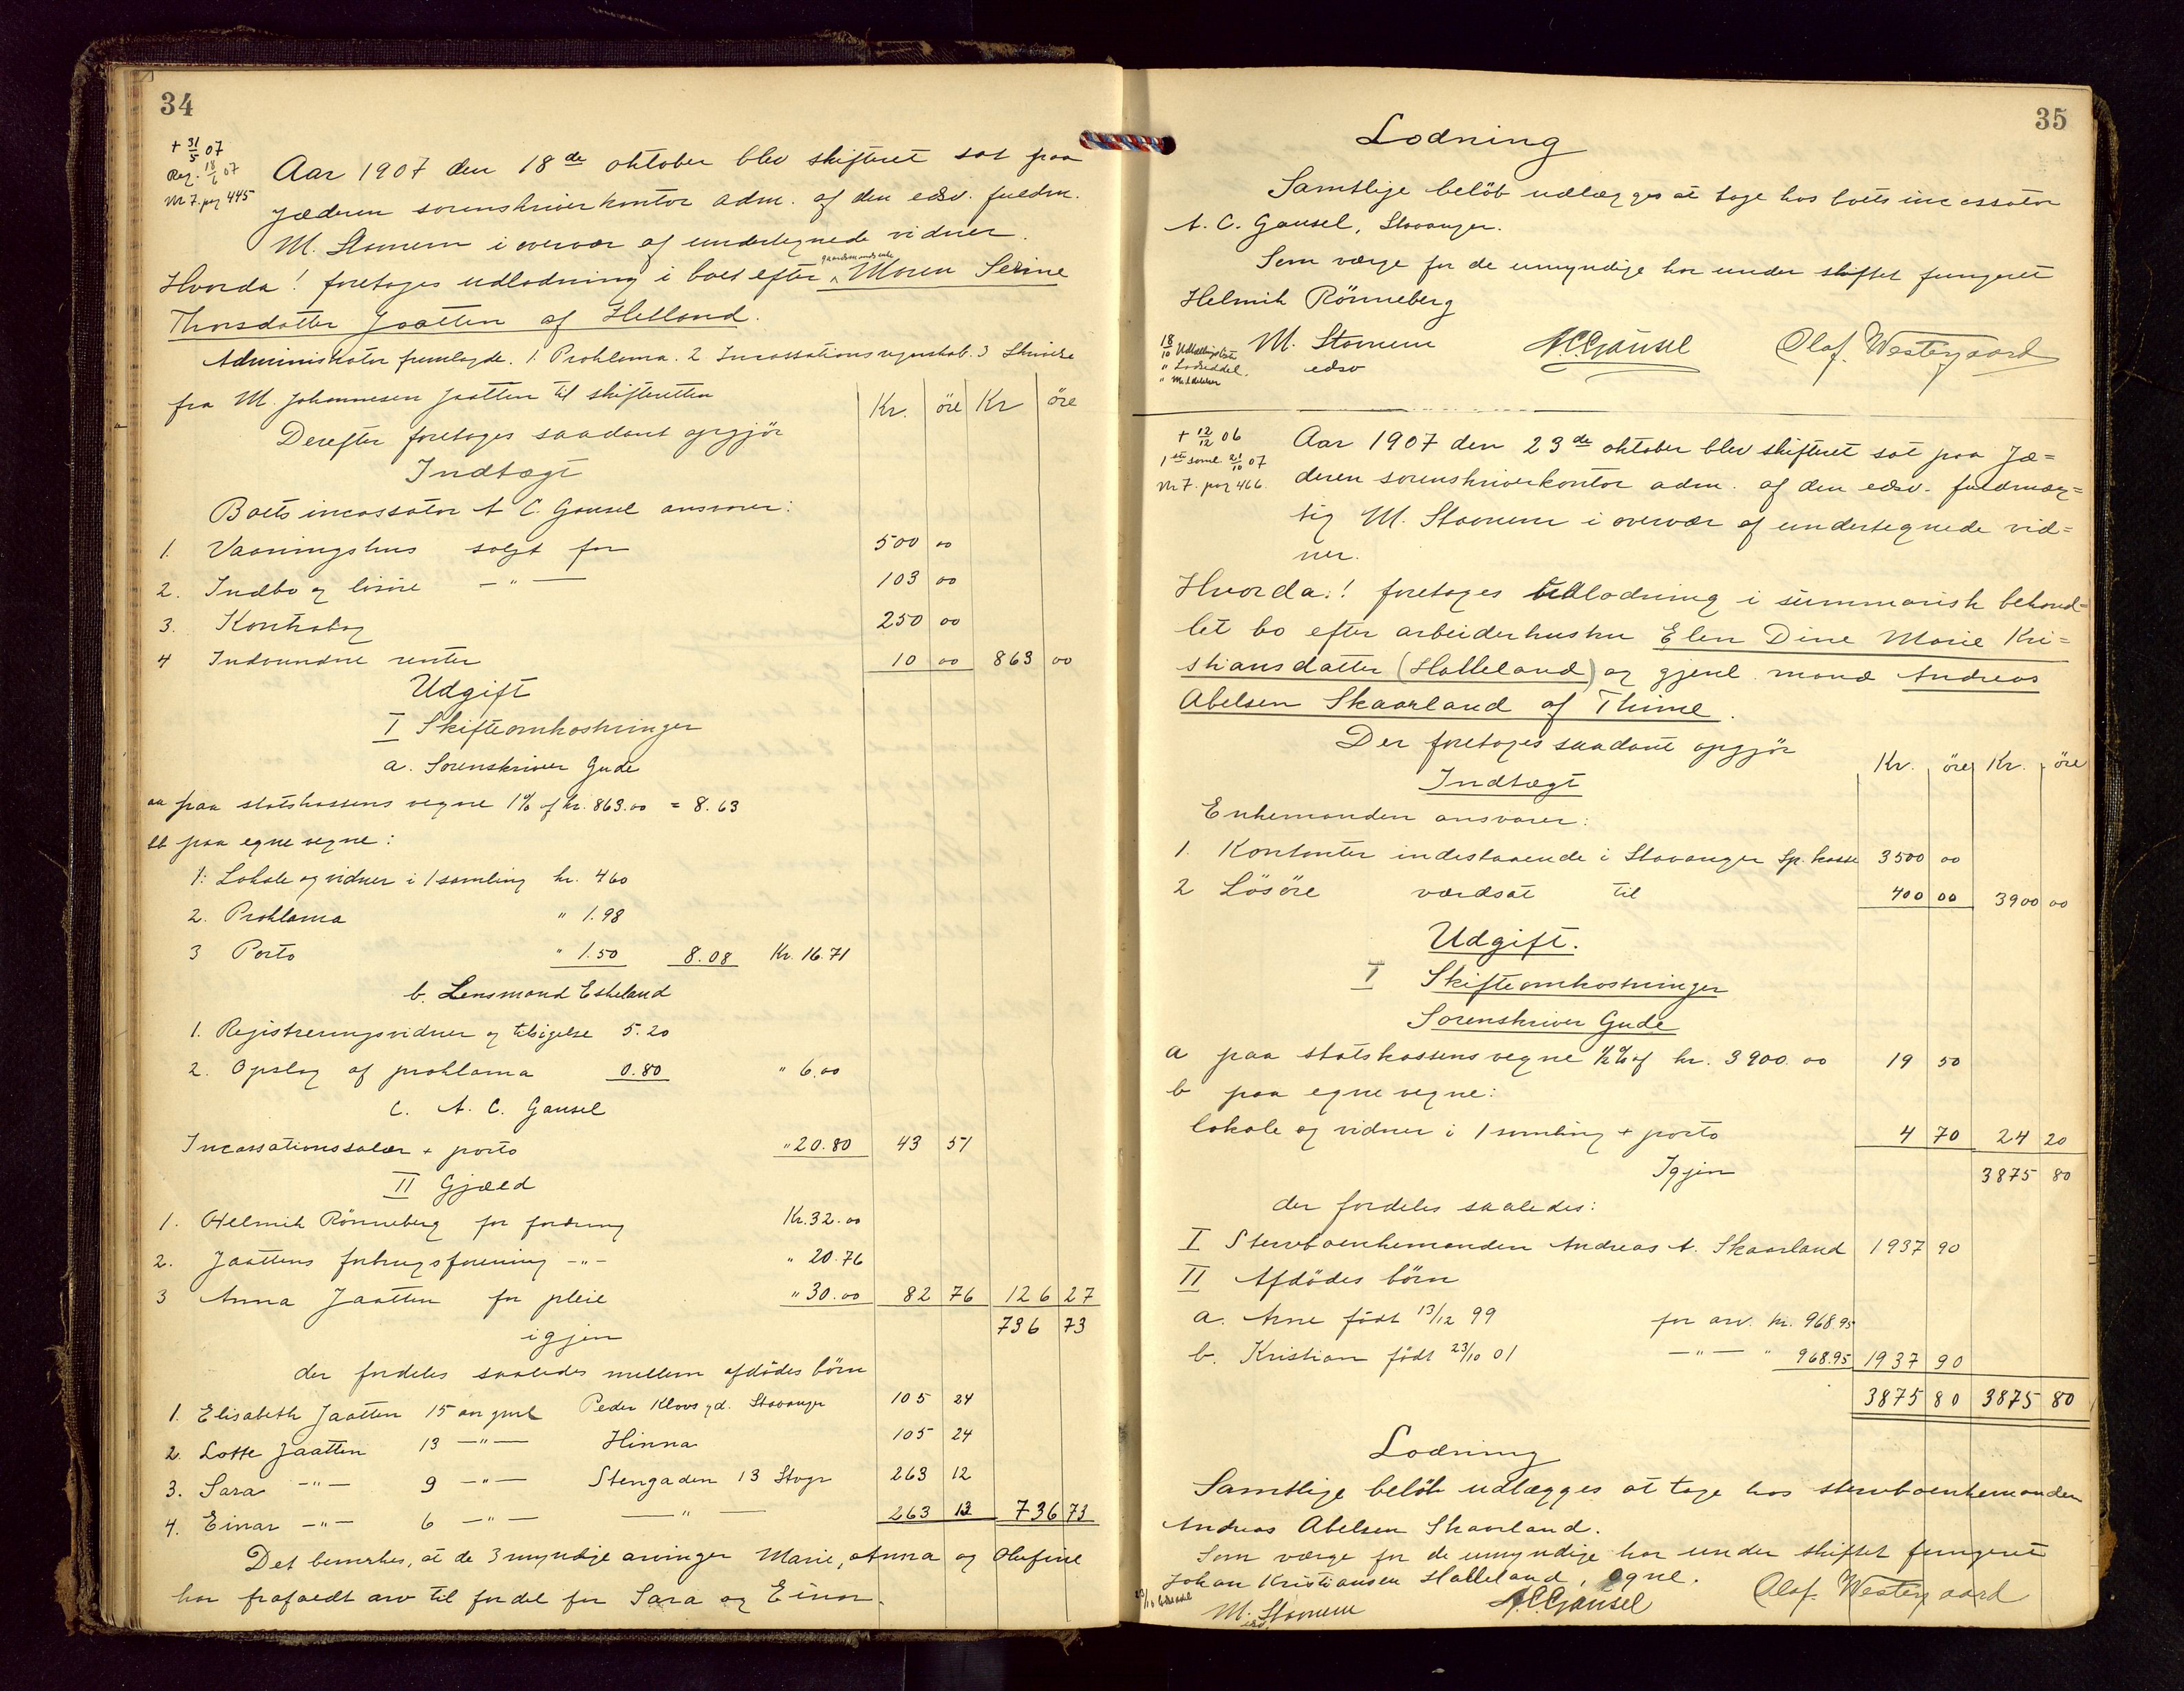 34
+ 31/5 07
Reg. 18/6 07
Nr 7. pag 445
Aar 1907 den 18de oktober blev skifteret sat paa
Jæderen sorenskriverkontor adm. af den edsv. fuldm.
M. Stornem i overvær af undertegnede vidner.
Hvorda! foretoges udlodning i boet efter gaardmandsenke Maren Serine
Thorsdatter Jaatten af Hetland.
Administrator fremlagde. 1. Proklama. 2 Incassationsregnskab. 3 Skrivelse
fra M. Johannesen Jaatten til skifteretten
Kr. öre Kr öre
Derefter foretoges saadant opgjör
Indtægt
Boets incassator A C. Gausel ansvarer:
1. Vaaningshus solgt for 500 00
2. Indbo og lösöre — " — 103 00
3. Kontrabog 250 00
4 Indvundne renter 10 00 863 00
Udgift
I Skifteomkostninger
a. Sorenskriver Gude
aa paa statskassens vegne 1% af kr. 863.00 = 8.63
bb paa egne vegne:
1. Lokale og vidner i 1 samling kr. 4 60
2. Proklama " 1.98
3 Porto " 1.50 8.08 Kr. 16.71
b. Lensmand Eskeland
1. Registreringsvidner og tilsigelse 5.20
2. Opslag af proklama 0.80 " 6.00
C. A. C. Gausel
Incassationssalær + porto " 20.80 43 51
II Gjæld
1. Helmik Rönneberg for fordring Kr. 32.00
2. Jaattens forbrugsforening — " — " 20.76
3 Anna Jaatten for pleie " 30.00 82 76 126 27
igjen 736 73
der fordeles saaledes mellem afdödes börn
1. Elisabeth Jaatten 15 aar gml Peder Klovs gd. Stavanger 105 24
2. Lotte Jaatten 13 — " — Hinna 105 24
3. Sara — " — 9 — " — Stengaden 13 Stvgr 263 12
4. Einar — " — 6 — " — — " — 263 13 736 73
Det bemerkes, at de 3 myndige arvinger Marie, Anna og Olufine
har frafaldt arv til fordel for Sara og Einar.
35
Lodning
Samtlige belöb udlægges at tage hos boets incassator
A. C. Gausel, Stavanger.
Som værge for de umyndige har under skiftet fungeret
Helmik Rönneberg
18/10 Udskrift
" Lodseddel.
" Meddelelser
M. Stornem A C Gausel Olaf. Westergaard
edsv
+ 12/12 06
1ste saml 21/10 07
Nr 7. pag 466.
Aar 1907 den 23de oktober blev skifteret sat paa Jæ=
deren sorenskriverkontor adm. af den edsv. fuldmæg=
tig M. Stornem i overvær af undertegnede vid=
ner.
Hvorda.! foretoges udlodning i summarisk behand=
let bo efter arbeiderhustru Elen Dine Marie Kri=
stiansdatter (Halleland) og gjenl. mand Andreas
Abelsen Skaarland af Thime.
Der foretoges saadant opgjör
Kr. öre Kr. öre
Indtægt
Enkemanden ansvarer:
1. Kontanter indestaaende i Stavanger Sp. kasse 3500 00
2 Lösöre værdsat til 400 00 3900 00
Udgift.
I Skifteomkostninger
Sorenskriver Gude
a paa statskassens vegne 1/2% af kr. 3900.00 19 50
b paa egne vegne:
lokale og vidner i 1 samling + porto 4 70 24 20
Igjen 3875 80
der fordeles saaledes:
I Stervboenkemanden Andreas A. Skaarland 1937 90
II Afdödes börn
a. Arne födt 13/12 99 for arv. kr. 968.95
b. Kristian födt 23/10 01 — " — " 968.95 1937 90
3875 80 3875 80
Lodning
Samtlige belöb udlægges at tage hos stervboenkemanden
Andreas Abelsen Skaarland.
Som værge for de umyndige har under skiftet fungeret
Johan Kristiansen Halleland, Ogne.
M. Stornem A.C. Gausel Olaf. Westergaard
edsv.